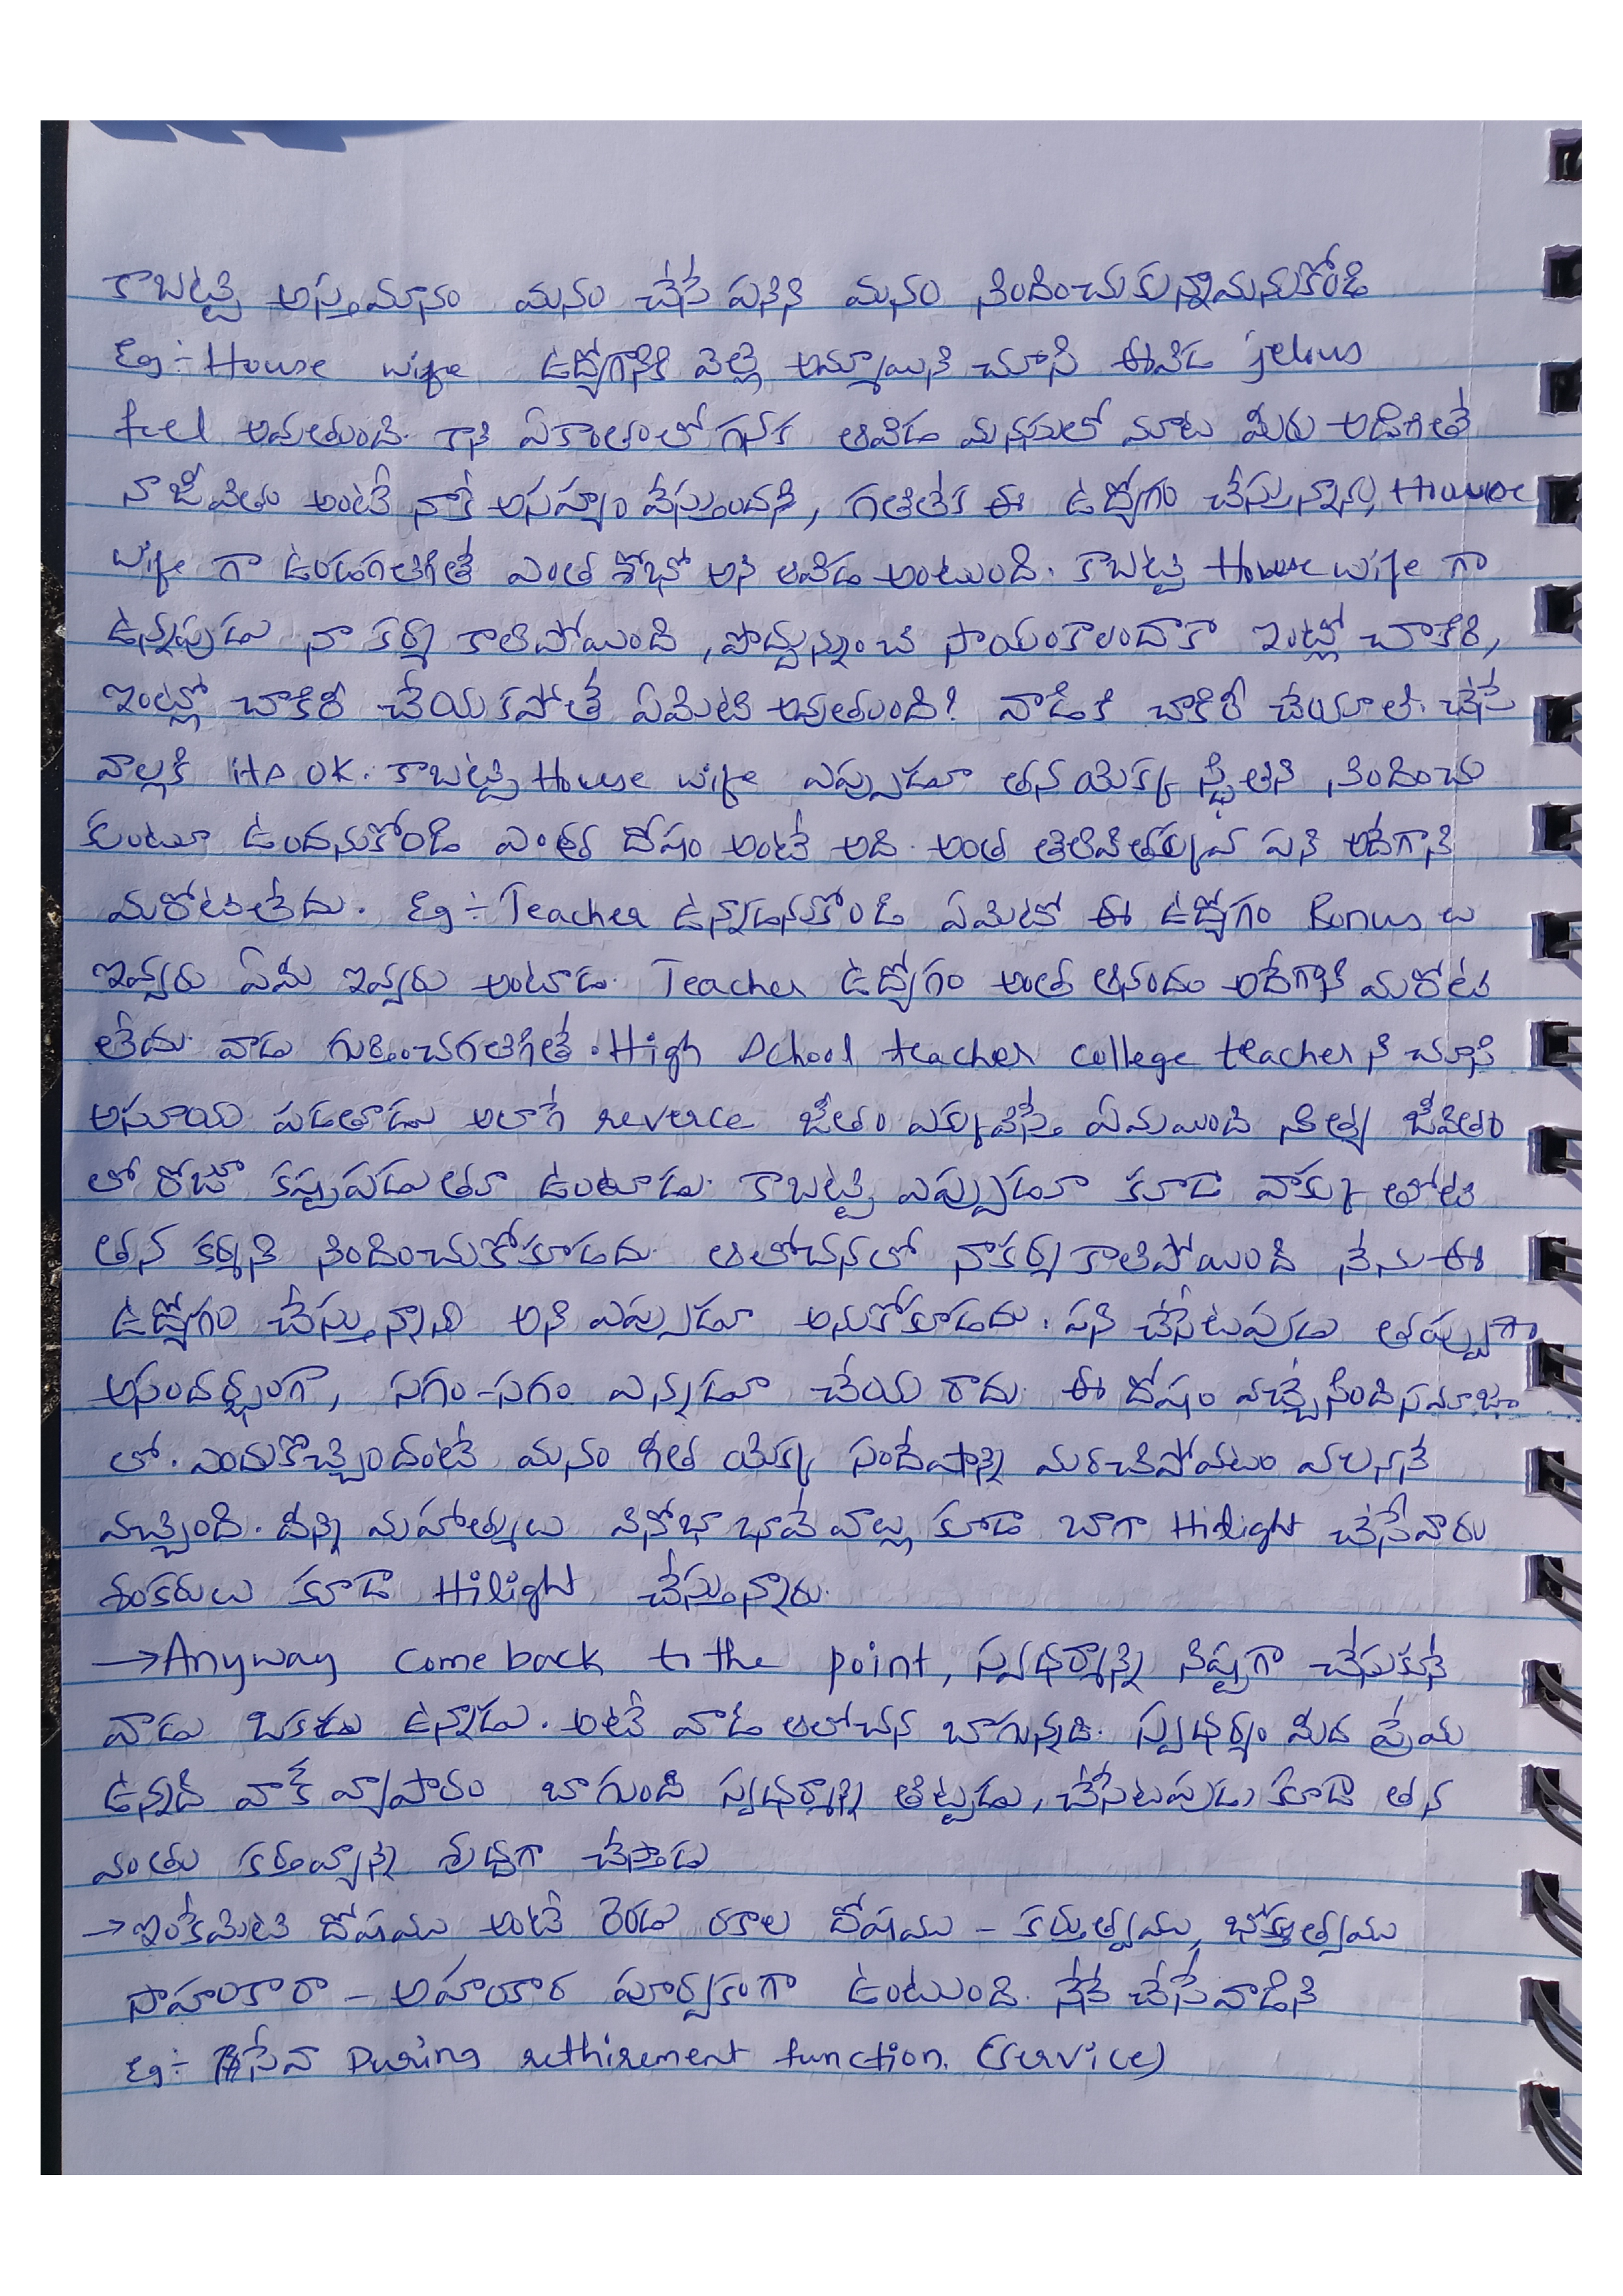 కాబట్టి అస్తమానం మనం చేసే పనిని మనం నిందించుకున్నామనుకోండి
Eg:- House wife ఉద్యోగానికి వెళ్లే అమ్మాయిని చూసి ఈవిడ jelous
feel అవుతుంది. కాని ఏకాంతంలో గనక ఆవిడ మనసులో మాట మీరు అడిగితే
నా జీవితం అంటే నాకే అసహ్యం వేస్తుందని, గతిలేక ఈ ఉద్యోగం చేస్తున్నాను, House
wife గా ఉండగలిగితే ఎంత శోభో అని ఆవిడ అంటుంది. కాబట్టి House wife గా
ఉన్నపుడు నా కర్మ కాలిపోయింది, పొద్దున్నుంచి సాయంకాలందాకా ఇంట్లో చాకిరి,
ఇంట్లో చాకిరీ చేయకపోతే ఏమిటి అవుతుంది? వాడికి చాకిరీ చేయాలి. చేసే
వాల్లకి its OK. కాబట్టి House wife ఎప్పుడూ తన యొక్క స్థితిని నిందించు
కుంటూ ఉందనుకోండి ఎంత దోషం అంటే అది అంత తెలివితక్కువ పని అదేగాని
మరోటిలేదు. Eg:- Teacher ఉన్నాడనుకోండి ఏమిటో ఈ ఉద్యోగం Bonus లు
ఇవ్వరు ఏమీ ఇవ్వరు అంటాడు. Teacher ఉద్యోగం అంత ఆనందం అదేగాని మరోటి
లేదు. వాడు గుర్తించగలిగితే. High School teacher college teacher ని చూసి
అసూయ పడతాడు అలాగే reverce జీతం ఎక్కువిస్తే ఏమయింది నిత్య జీవితం
లో రోజూ కష్టపడుతూ ఉంటాడు. కాబట్టి ఎప్పుడూ కూడా వాక్కు తోటి
తన కర్మని నిందించుకోకూడదు. ఆలోచనలో నాకర్మకాలిపోయింది నేను ఈ
ఉద్యోగం చేస్తున్నాను అని ఎప్పుడూ అనుకోకూడదు. పని చేసేటపుడు తప్పుగా
అసందర్భంగా, సగం-సగం ఎన్నడూ చేయ రాదు. ఈ దోషం వచ్చేసింది సమాజం
లో. ఎందుకొచ్చిందంటే మనం గీత యొక్క సందేషాన్ని మరచిపోవటం వలననే
వచ్చింది. దీన్ని మహాత్ములు వినోభా భావే వాల్లు కూడా బాగా Hilight చేసేవారు
శంకరులు కూడా Hilight చేస్తున్నారు.
→Anyway come back to the point, స్వధర్మాన్ని నిష్టగా చేసుకునే
వాడు ఒకడు ఉన్నాడు. అంటే వాడి ఆలోచన బాగున్నది. స్వధర్మం మీద ప్రేమ
ఉన్నది వాక్ వ్యాపారం బాగుంది స్వధర్మాన్ని తిట్టడు, చేసేటపుడు కూడా తన
వంతు కర్తవ్యాన్ని శుద్ధగా చేస్తాడు
→ఇంకేమిటి దోషము అంటే రెండు రకాల దోషము - కర్తృత్వము, భోక్తృత్వము
సాహంకారా - అహంకార పూర్వకంగా ఉంటుంది. నేనే చేసేవాడిని
Eg:- సేవా During rethirement function. (Service)